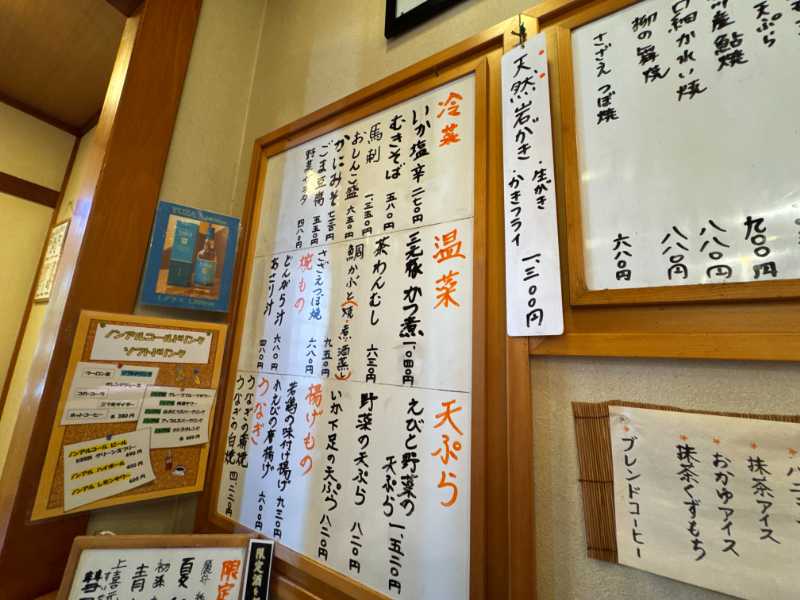 冷菜
いか塩辛 二七〇円
むきそば 五八〇円
馬刺 一、三五〇円
おしんこ盛 六五〇円
かにみそ 七三〇円
ごま豆腐 五五〇円
野菜サラダ 四八〇円
温菜
三元豚かつ煮 一、〇四〇円
茶わんむし 六三〇円
鯛かぶと(焼・煮・酒蒸し) 九五〇円
焼もの
さざえつぼ焼 六八〇円
どんがら汁 六八〇円
あさり汁 四八〇円
天ぷら
えびと野菜の天ぷら 一、五二〇円
野菜の天ぷら 八二〇円
いか下足の天ぷら 八二〇円
揚げもの
若鶏の味付け揚げ 九三〇円
小えびの唐揚げ 六〇〇円
うなぎ
うなぎの蒲焼
うなぎの白焼
天然岩がき ・生がき ・かきフライ 一、三〇〇円
天ぷら 九〇〇円
産鮎焼 八八〇円
口細かれい焼 八八〇円
柳の舞焼
さざえつぼ焼 六八〇円
YUZA
ノンアルコールドリンク
ソフトドリンク
ウーロン茶
コカ・コーラ
ホットコーヒー
オレンジジュース
三ツ矢サイダー
各 350 円
ノンアルコール ビール
ノンアル ハイボール
ノンアル レモンサワー
抹茶アイス
抹茶くずもち
おかゆアイス
ブレンドコーヒー
限定
夏
初孫
青
上喜
限定酒